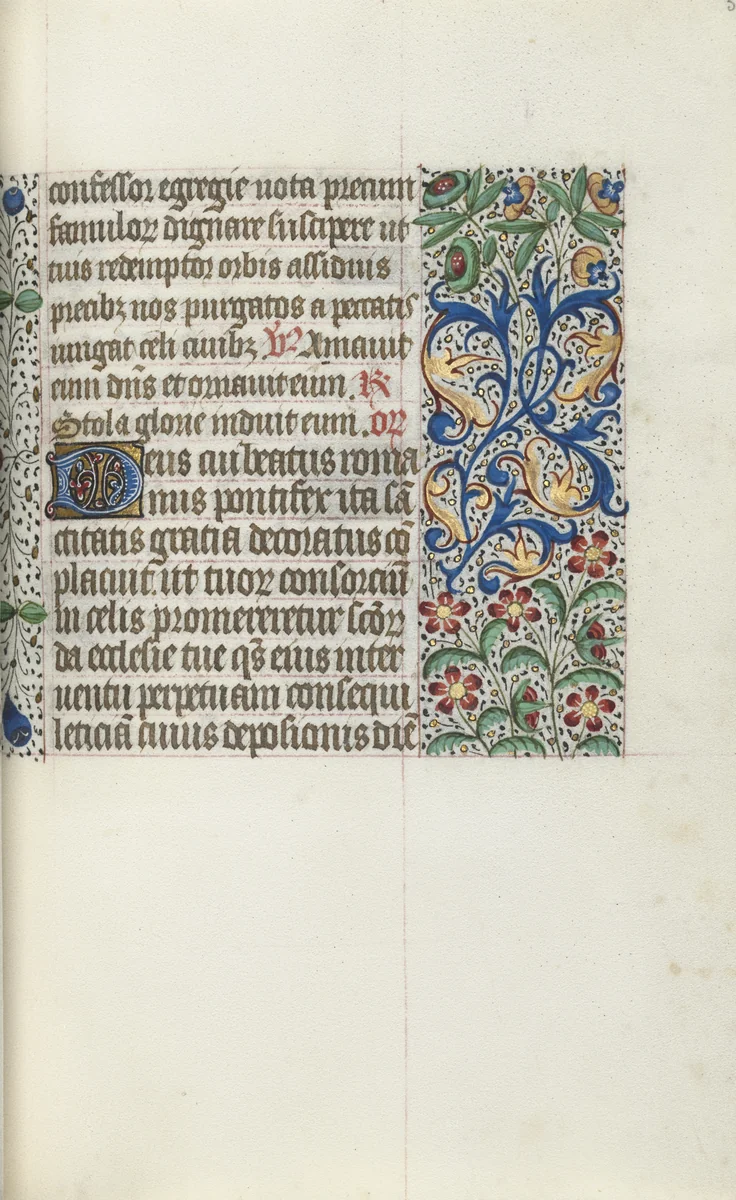 confessor egregie uota precum
famulor​ꝝ dignare suscipere ut
tuis redemptor orbis assiduis
precibꝫ nos purgatos a peccatis
iungat celi ciuibꝫ V̄ Amauit
eum dn̄s et ornauit eum. R
Stola glorie induit eum. oꝝ
Deus cui beatus roma
nus pontifex ita sā
ctitatis gratia decoratus cō
placuit. ut tuoꝝ consorciū
in celis promereretur scōꝝ
da ecclesie tue qs̄ eius inter
uentu perpetuam consequi
leticiā cuius deposionis diē